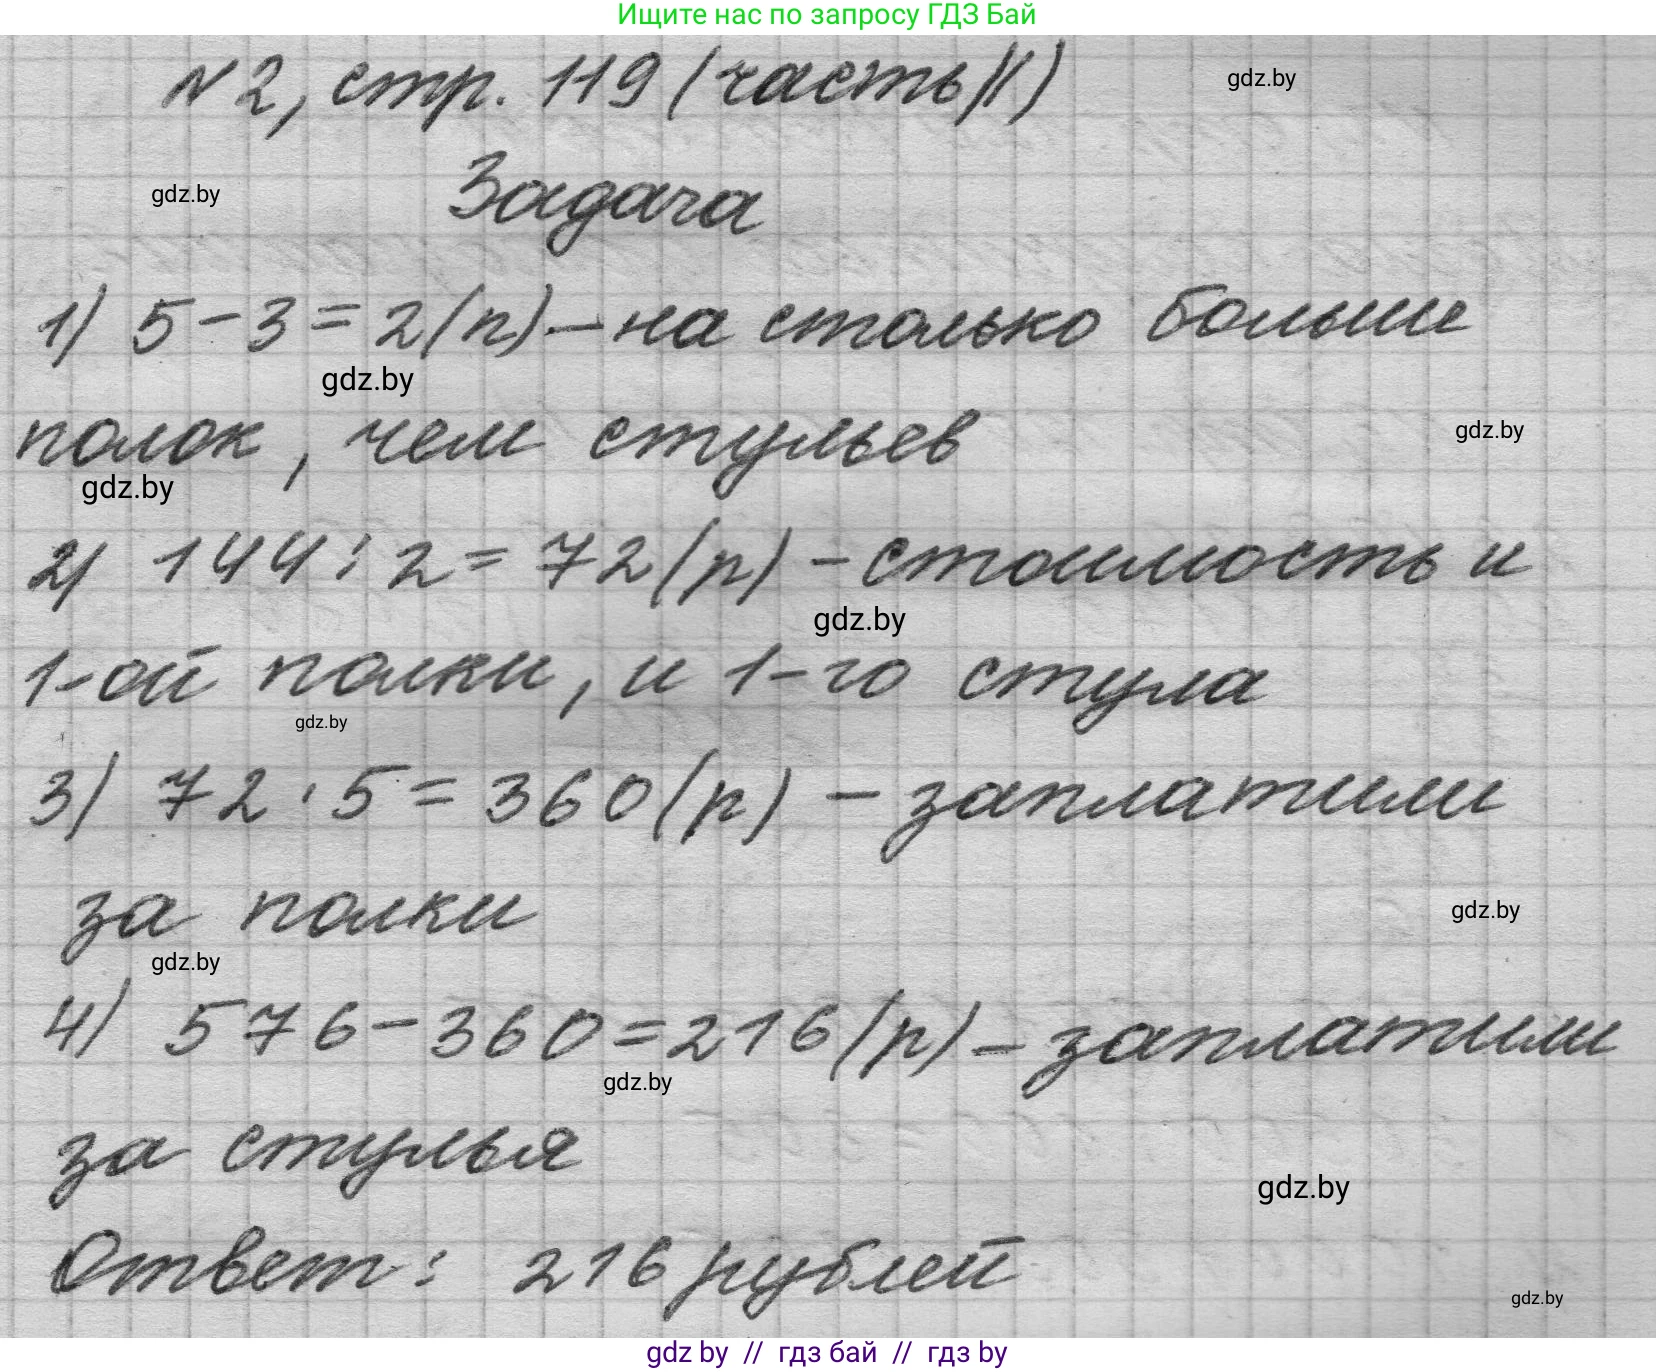 Ищите нас по запросу ГДЗ Бай
№2, стр. 119 (часть II)
gdz.by
Задача
gdz.by
1) 5-3=2(п)-на столько больше
gdz.by
полок, чем стульев
gdz.by
gdz.by
2) 144:2=72(р)-стоимость и
gdz.by
1-ой полки, и 1-го стула
gdz.by
3) 72·5=360(р)-заплатили
за полки
gdz.by
gdz.by
4) 576-360=216(р)-заплатили
gdz.by
за стулья
gdz.by
Ответ: 216 рублей
gdz.by
gdz by // гдз бай // гдз by